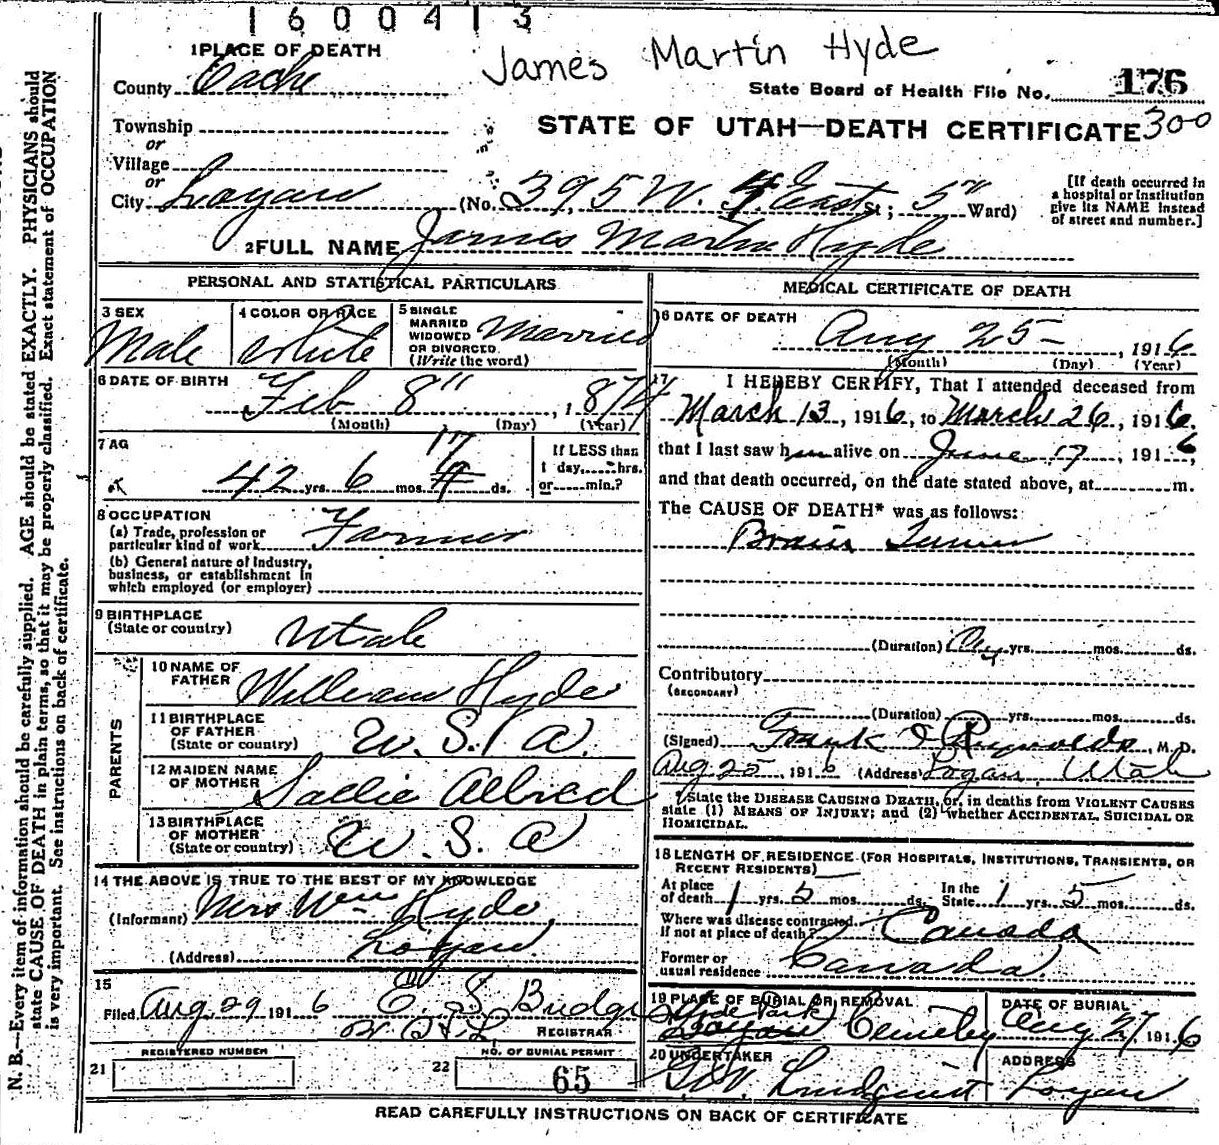 1600413
James Martin Hyde
1 PLACE OF DEATH
County Cache
State Board of Health File No. 176
300
STATE OF UTAH—DEATH CERTIFICATE
Township
or
Village
or
City Logan (No. 395 W. 4 East St; 5" Ward)
[If death occurred in a hospital or institution give its NAME instead of street and number.]
2 FULL NAME James Martin Hyde
PERSONAL AND STATISTICAL PARTICULARS
3 SEX Male
4 COLOR OR RACE White
5 SINGLE MARRIED WIDOWED OR DIVORCED (Write the word) Married
6 DATE OF BIRTH Feb 8", 1874
(Month) (Day) (Year)
7 AG
42 yrs. 6 mos. 17 ds.
If LESS than 1 day,......hrs. or......min.?
8 OCCUPATION
(a) Trade, profession or particular kind of work Farmer
(b) General nature of Industry, business, or establishment in which employed (or employer)
9 BIRTHPLACE (State or country) Utah
PARENTS
10 NAME OF FATHER William Hyde
11 BIRTHPLACE OF FATHER (State or country) U. S. A.
12 MAIDEN NAME OF MOTHER Sallie Allred
13 BIRTHPLACE OF MOTHER (State or country) U. S. A
14 THE ABOVE IS TRUE TO THE BEST OF MY KNOWLEDGE
(Informant) Mrs Wm Hyde,
(Address) Logan
15
Filed Aug 29 1916 E. S. Budge
REGISTRAR
REGISTERED NUMBER
21
NO. OF BURIAL PERMIT
22 65
MEDICAL CERTIFICATE OF DEATH
16 DATE OF DEATH
Aug 25, 1916
(Month) (Day) (Year)
17 I HEREBY CERTIFY, That I attended deceased from
March 13, 1916, to March 26, 1916.
that I last saw him alive on June 17, 1916,
and that death occurred, on the date stated above, at......m.
The CAUSE OF DEATH* was as follows:
Brain Tumor
(Duration) yrs. mos. ds.
Contributory
(SECONDARY)
(Duration) yrs. mos. ds.
(Signed) Frank Reynolds, M.D.
Aug 25, 1916 (Address) Logan, Utah
*State the DISEASE CAUSING DEATH, or, in deaths from VIOLENT CAUSES
state (1) MEANS OF INJURY; and (2) whether ACCIDENTAL, SUICIDAL OR
HOMICIDAL.
18 LENGTH OF RESIDENCE (FOR HOSPITALS, INSTITUTIONS, TRANSIENTS, OR
RECENT RESIDENTS)
At place of death 1 yrs. 5 mos. ds. In the State 1 yrs. 5 mos. ds.
Where was disease contracted, If not at place of death? Canada
Former or usual residence Canada
19 PLACE OF BURIAL OR REMOVAL
Hyde Park
Logan Cemetery
DATE OF BURIAL
Aug 27, 1916
20 UNDERTAKER
Lundquist
ADDRESS
Logan
READ CAREFULLY INSTRUCTIONS ON BACK OF CERTIFICATE
N. B.—Every item of information should be carefully supplied. AGE should be stated EXACTLY. PHYSICIANS should
state CAUSE OF DEATH in plain terms, so that it may be properly classified. Exact statement of OCCUPATION
is very important. See instructions on back of certificate.